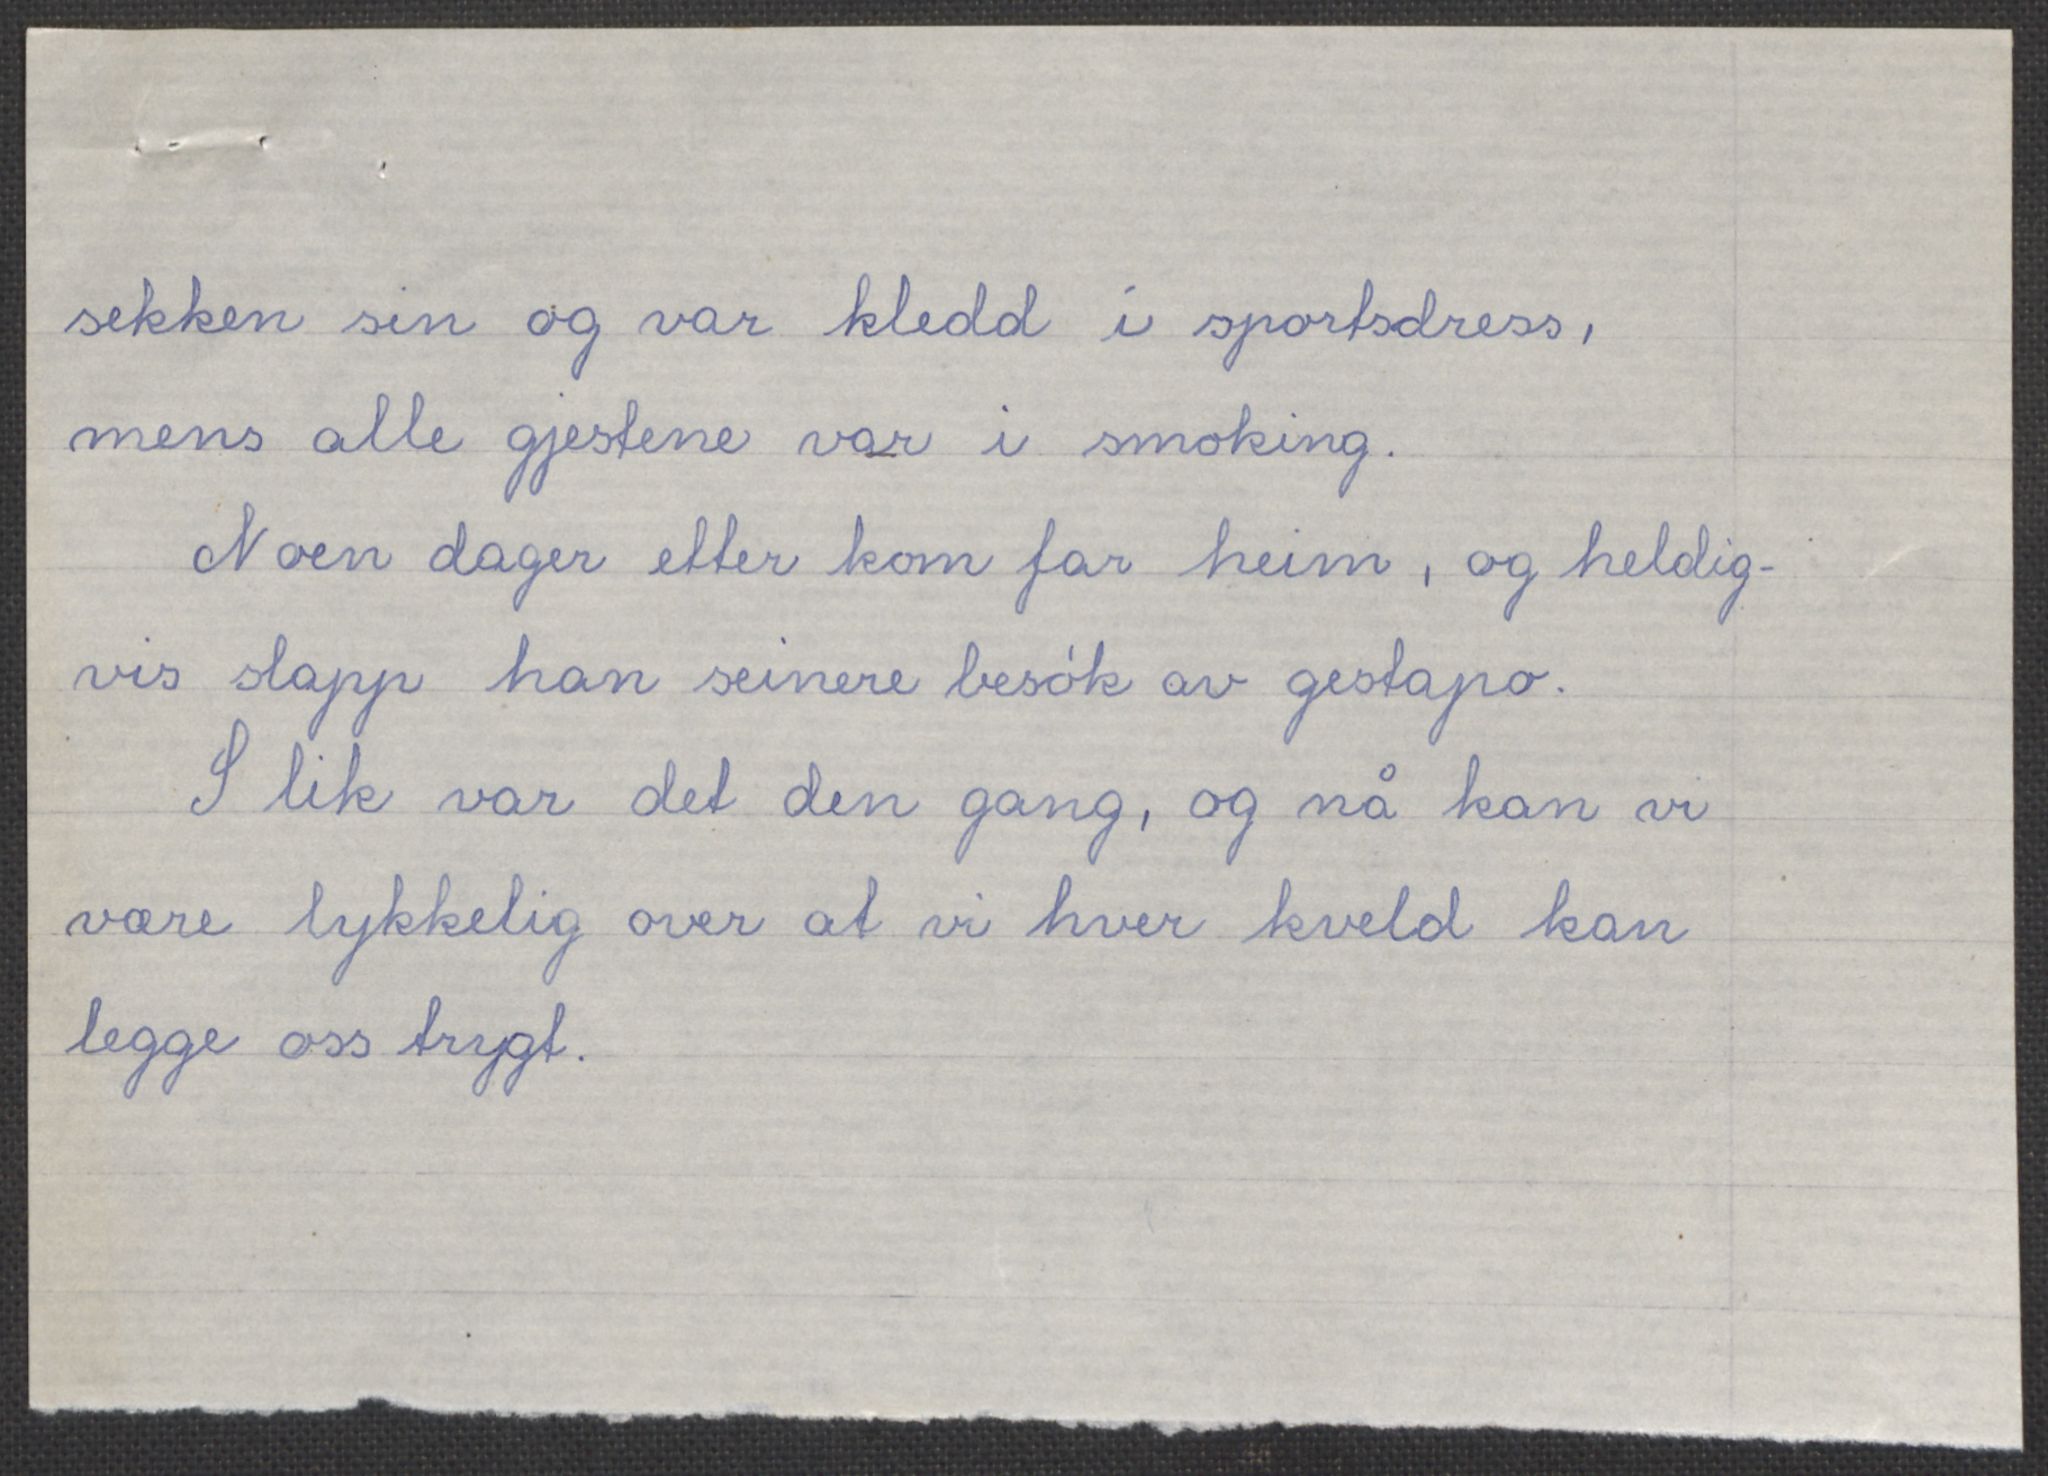 sekken sin og var kledd i sportsdress,
mens alle gjestene var i smoking.
Noen dager etter kom far heim, og heldig-
vis slapp han seinere besök av gestapo.
Slik var det den gang, og nå kan vi
være lykkelig over at vi hver kveld kan
legge oss trygt.